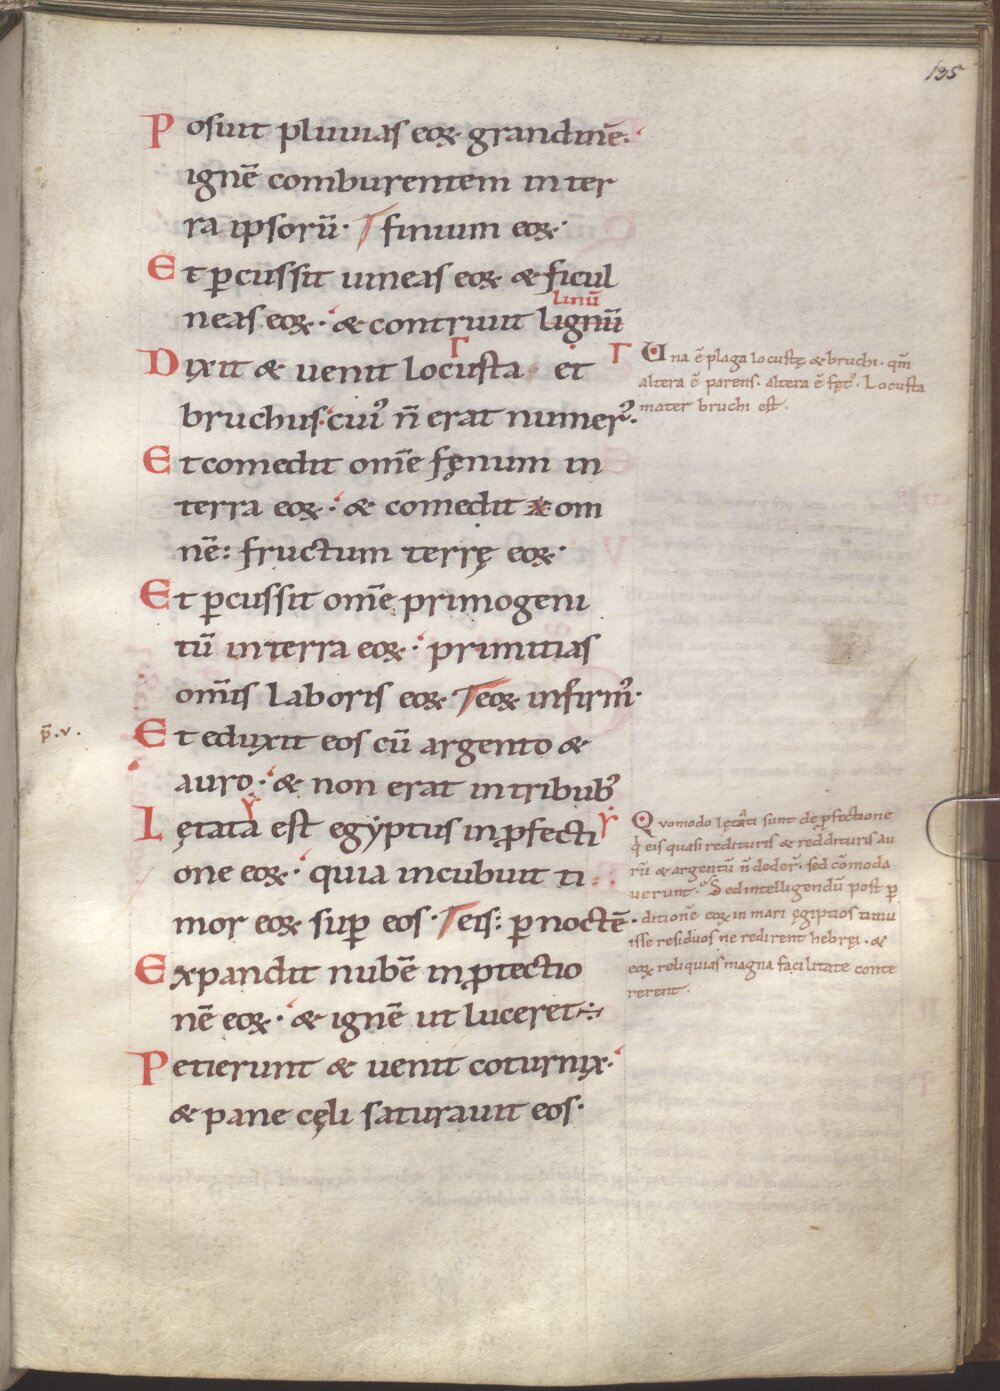 135
Posuit pluuias eoꝝ grandinē·
ignē comburentem inter
ra ipsorū· finium eoꝝ·
Et ꝑcussit uineas eoꝝ & ficul
linū
neas eoꝝ· & contriuit lignū
Dixit & uenit locusta et
bruchus· cuiꝰ n̄ erat numerꝰ·
Et comedit om̄e fęnum in
terra eoꝝ· & comedit om
nē: fructum terrę eoꝝ·
Et ꝑcussit om̄e primogeni
tū interra eoꝝ· primitias
om̄is laboris eoꝝ eoꝝ infirm̄·
p̄.v.
Et eduxit eos cū argento &
auro· & non erat intribubꝰ
Lętata est egẏptus inꝓfecti
one eoꝝ· quia incubuit ti
mor eoꝝ suꝑ eos· eis: ꝑ noctē·
Expandit nubē inꝓtectio
nē eoꝝ· & ignē ut luceret
Petierunt & uenit coturnix·
& pane cęli saturauit eos·
Una ē plaga locustę & bruchi· qm̄
altera ē parens· altera ē fętꝰ· Locusta
mater bruchi est·
Quomodo lętati sunt de ꝓfectione
eis quasi redituris & reddituris au
rū & argentū n̄ dedert̄· sed cōmoda
uerunt· Sed intelligendū post ꝑ
ditionē eoꝝ in mari ęgiptios timu
isse residuos ne redirent hebręi· &
eoꝝ reliquias magna facilitate conte
rerent·